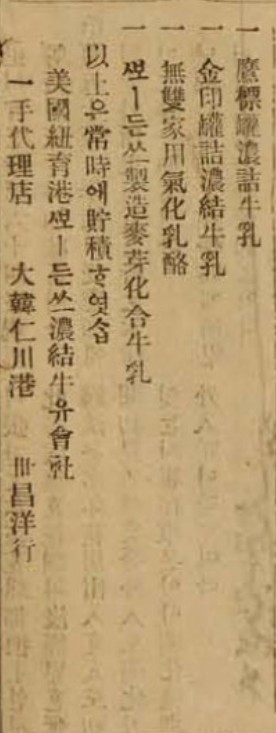 一 鷹標罐濃詰牛乳
一 金印罐詰濃結牛乳
一 無雙家用氣化乳酪
一 ᄲᅩㅣ든쓰製造麥芽化合牛乳
以上은常時에貯積ᄒᆞ엿슴
美國紐育港ᄲᅩㅣ든쓰濃結牛유會社
一手代理店 大韓仁川港 世昌洋行